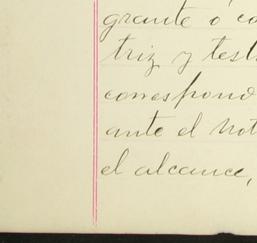 grante o co
triz y test
correspond
ante el Not
el alcance,